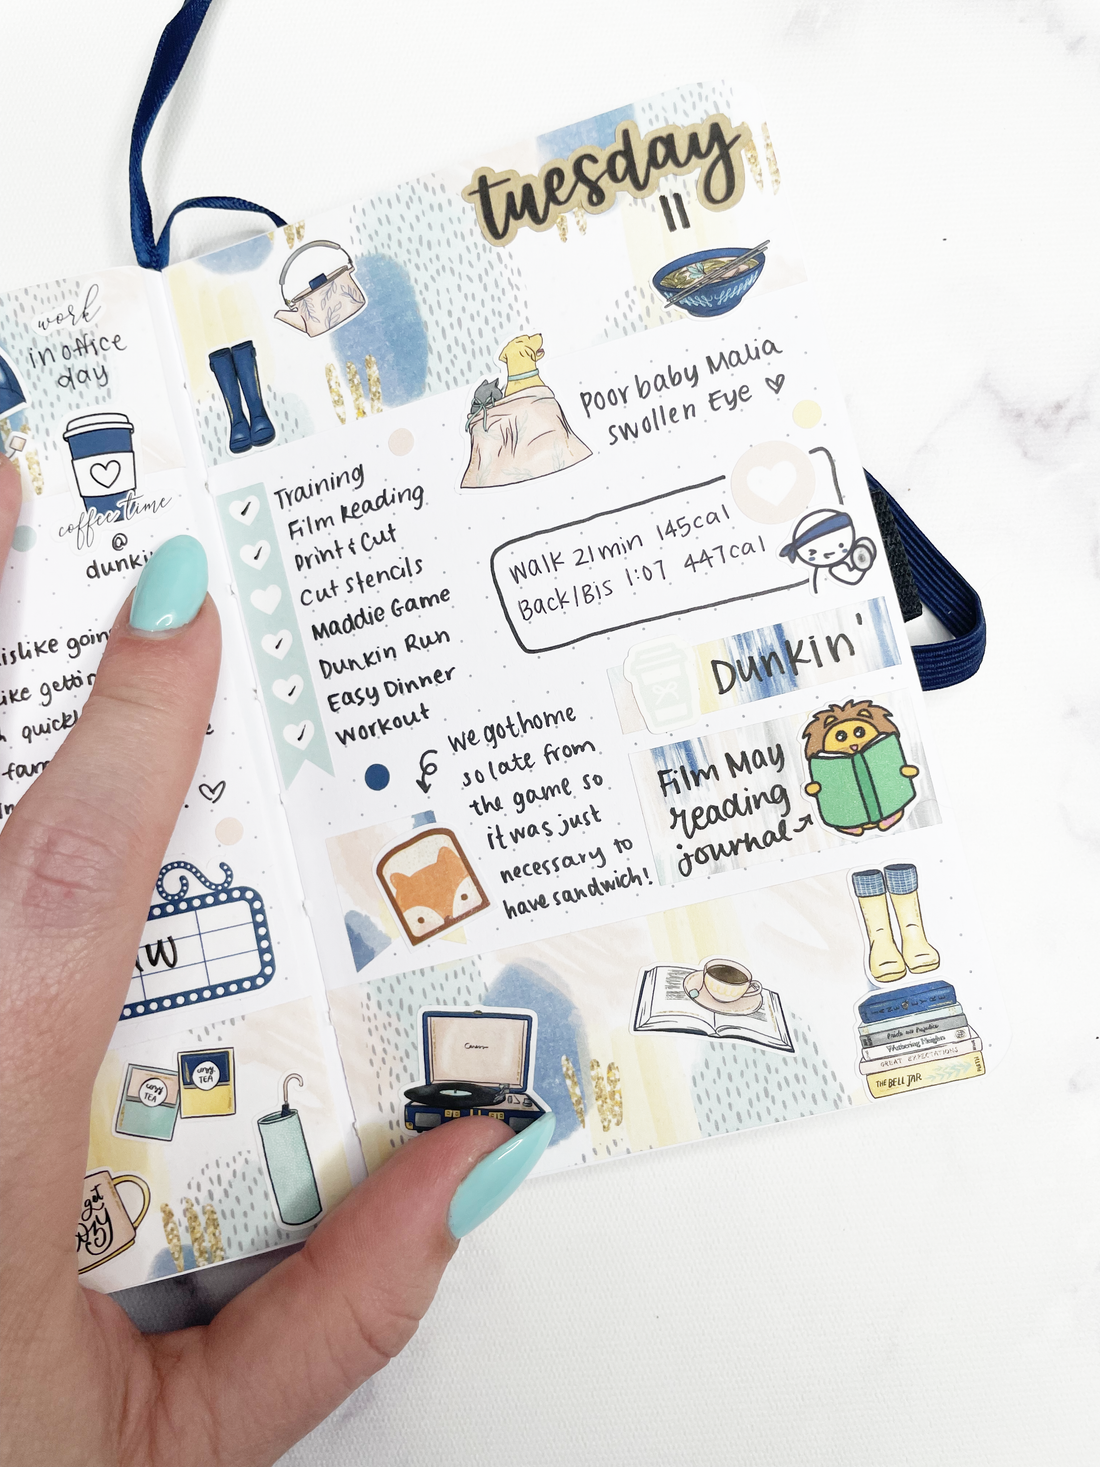 work
in office
day
coffee time
@
tuesday
11
Poor baby Malia
swollen Eye
Training
Film Reading
Print & Cut
Cut Stencils
Maddie Game
Dunkin Run
Easy Dinner
Workout
Walk 21min 145cal
Back/Bis 1:07 447cal
Dunkin'
we got home
so late from
the game so
it was just
necessary to
have sandwich!
Film May
reading
journal
TEA
TEA
get
cozy
Wuthering Heights
GREAT EXPECTATIONS
THE BELL JAR
PLATH